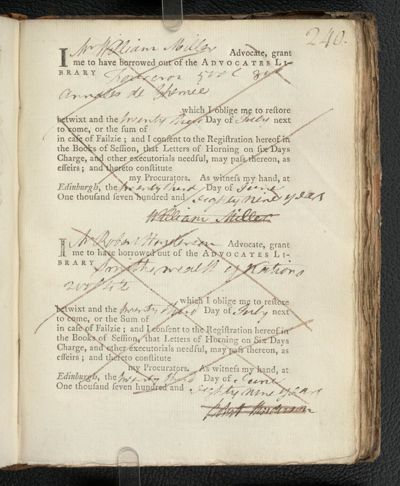 240.
I Mr William Miller Advocate, grant
me to have borrowed out of the ADVOCATES LI-
BRARY Fourcroy
Annales de Chimie
which I oblige me to restore
betwixt and the twenty third Day of July next
to come, or the sum of
in case of Failzie; and I consent to the Registration hereof in
the Books of Session, that Letters of Horning on six Days
Charge, and other executorials needful, may pass thereon, as
effeirs; and thereto constitute
my Procurators. As witness my hand, at
Edinburgh, the twenty third Day of June
One thousand seven hundred and eighty nine years
William Miller
I Mr Robert Advocate, grant
me to have borrowed out of the ADVOCATES LI-
BRARY Smiths wealth of Nations
2 vols
which I oblige me to restore
betwixt and the twenty third Day of July next
to come, or the Sum of
in case of Failzie; and I consent to the Registration hereof in
the Books of Session, that Letters of Horning on Six Days
Charge, and other executorials needful, may pass thereon, as
effeirs; and thereto constitute
my Procurators. As witness my hand, at
Edinburgh, the twenty third Day of June
One thousand seven hundred and eighty nine years
Robert